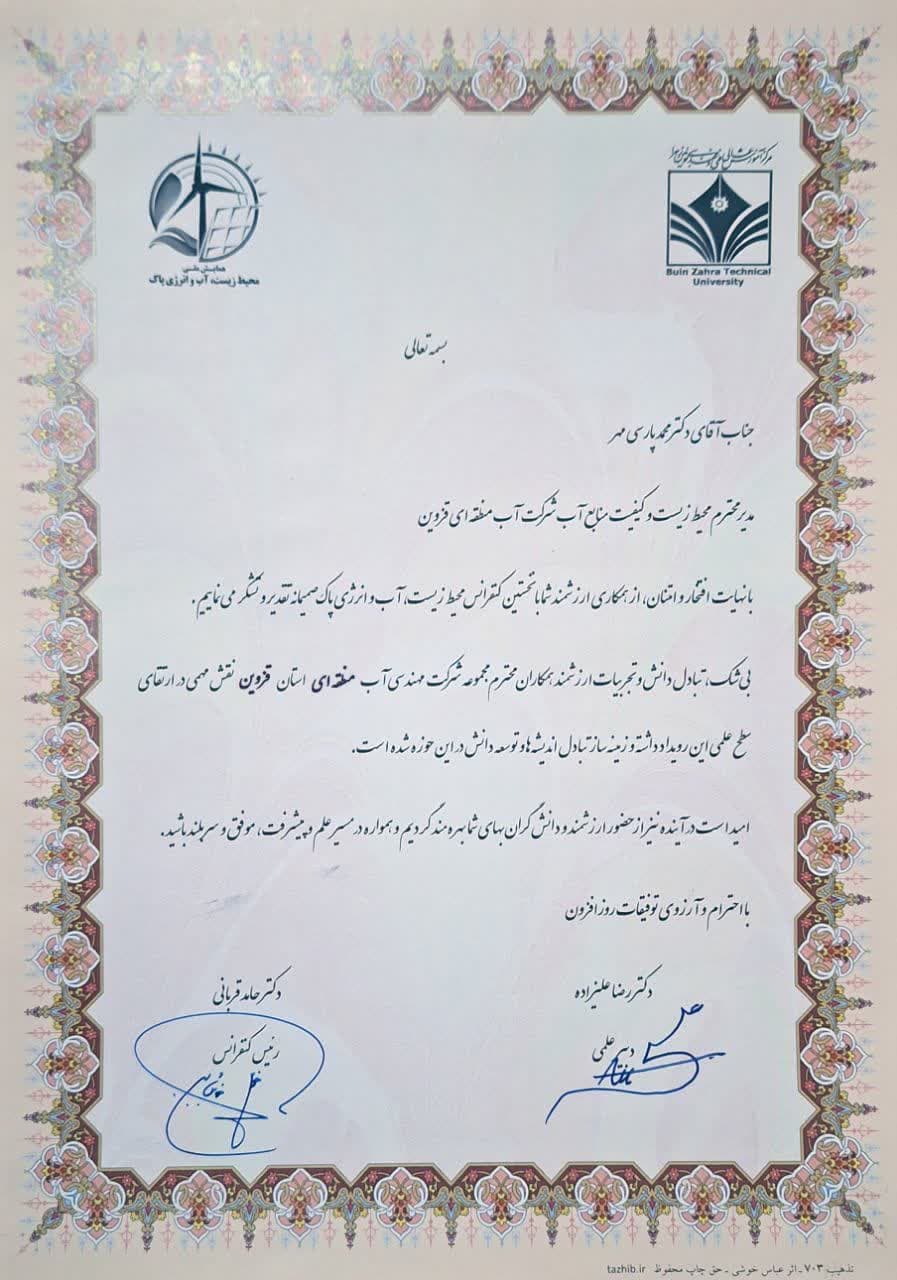 مرکز آموزش عالی فنی و مهندسی بوئین زهرا
Buin Zahra Technical
University
همایش ملی
محیط زیست، آب و انرژی پاک
بسمه تعالی
جناب آقای دکتر محمد پارسی مهر
مدیر محترم محیط زیست و کیفیت منابع آب شرکت آب منطقه ای قزوین
با نهایت افتخار و امتنان، از همکاری ارزشمند شما با نخستین کنفرانس محیط زیست، آب و انرژی پاک صمیمانه تقدیر و تشکر می نماییم.
بی شک، تبادل دانش و تجربیات ارزشمند همکاران محترم مجموعه شرکت مهندسی آب منطقه ای استان قزوین نقش مهمی در ارتقای
سطح علمی این رویداد داشته و زمینه ساز تبادل اندیشه ها و توسعه دانش در این حوزه شده است.
امید است در آینده نیز از حضور ارزشمند و دانش گران بهای شما بهره مند گردیم و همواره در مسیر علم و پیشرفت، موفق و سربلند باشید.
با احترام و آرزوی توفیقات روزافزون
دکتر رضا علیزاده
دبیر علمی
دکتر حامد قربانی
رئیس کنفرانس
تذهیب ۷۰۳ ـ اثر عباس خوشی ـ حق چاپ محفوظ tazhib.ir